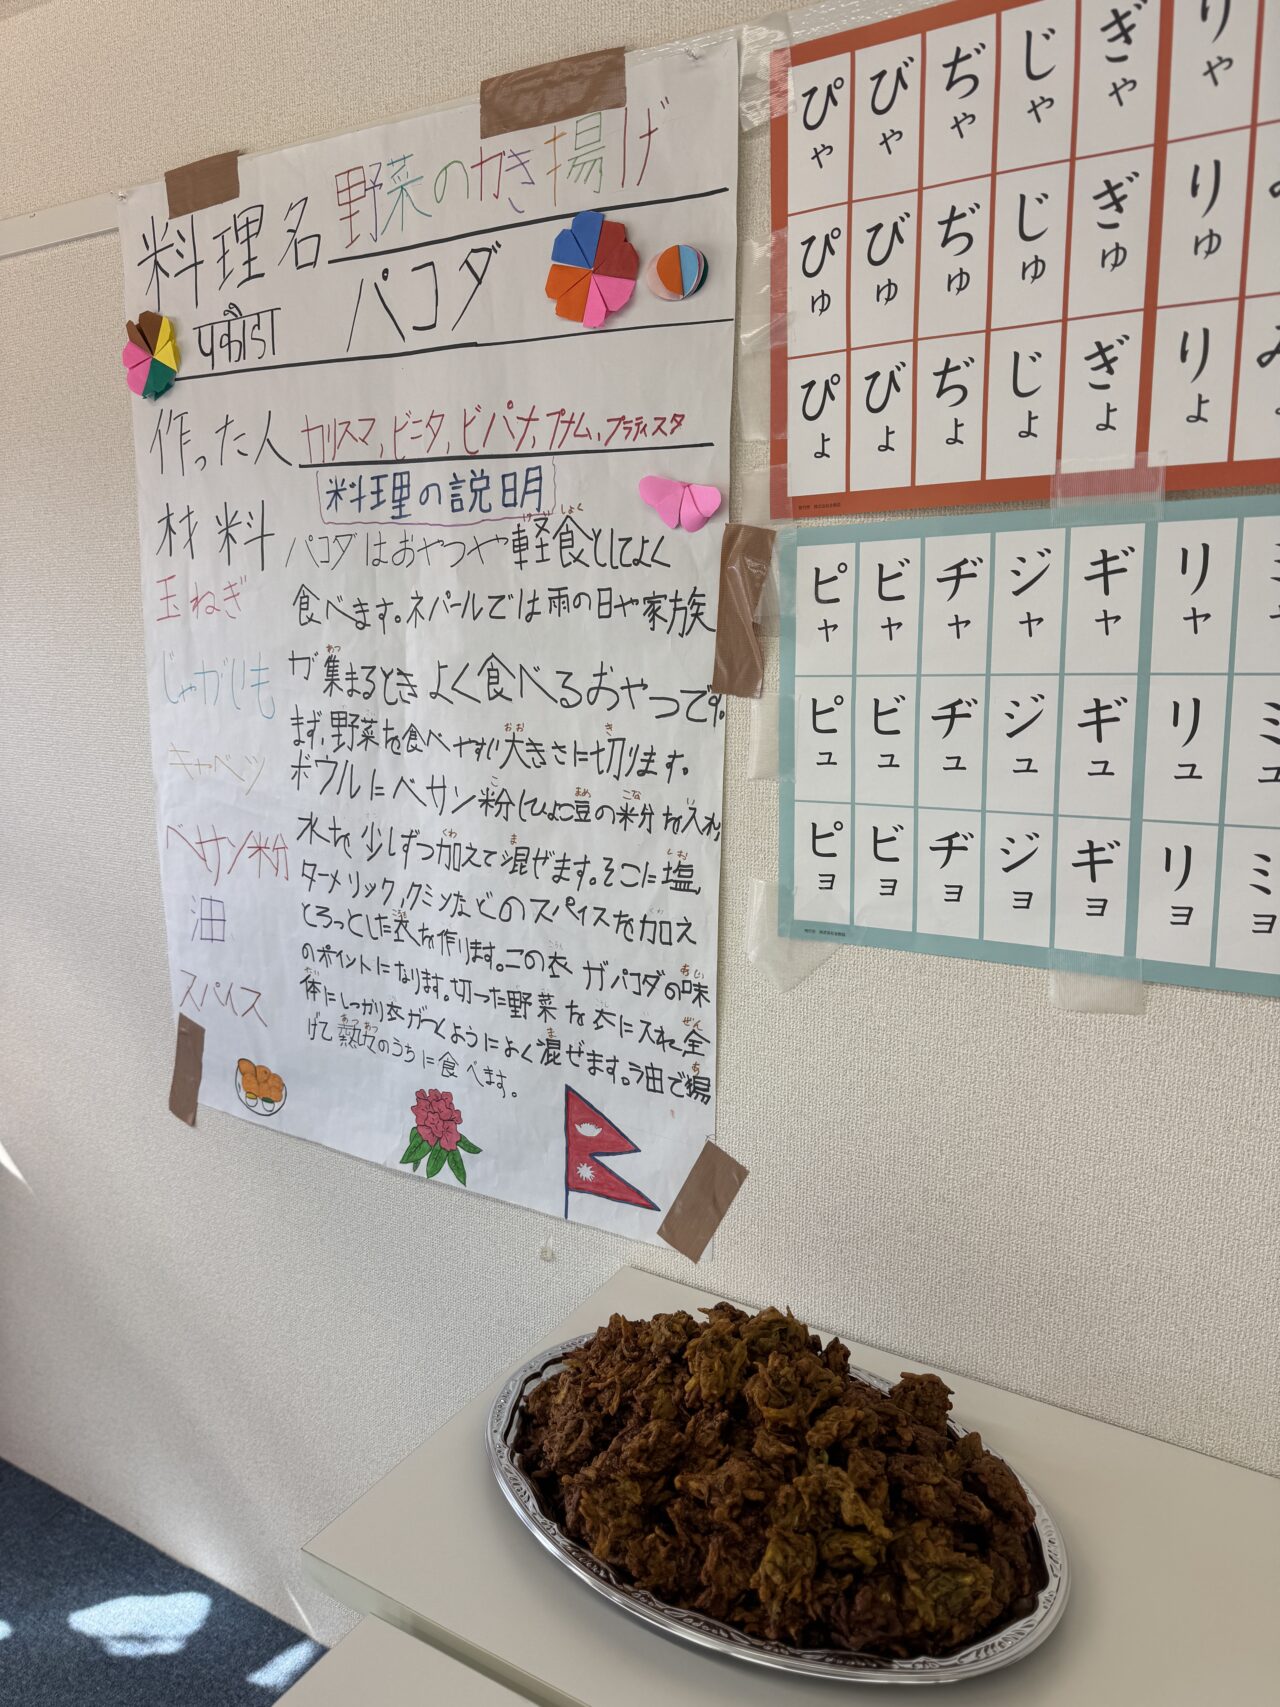 料理名 野菜のかき揚げ
पकौडा パコダ
作った人 カリスマ, ビニタ, ビパナ, プナム, プラティスタ
料理の説明
材料
玉ねぎ
じゃがいも
キャベツ
ベサン粉
油
スパイス
パコダはおやつや軽食としてよく
食べます。ネパールでは雨の日や家族
が集まるときよく食べるおやつです。
まず、野菜を食べやすい大きさに切ります。
ボウルにベサン粉(ひよこ豆の粉を入れ
水を少しずつ加えて混ぜます。そこに塩、
ターメリック,クミンなどのスパイスを加え
とろっとした衣を作ります。この衣がパコダの味
のポイントになります。切った野菜を衣に入れ全
体にしっかり衣がつくようによく混ぜます。油で揚
げて熱々のうちに食べます。
ぴゃ びゃ ぢゃ じゃ ぎゃ りゃ
ぴゅ びゅ ぢゅ じゅ ぎゅ りゅ
ぴょ びょ ぢょ じょ ぎょ りょ
ピャ ビャ ヂャ ジャ ギャ リャ
ピュ ビュ ヂュ ジュ ギュ リュ ミュ
ピョ ビョ ヂョ ジョ ギョ リョ ミョ